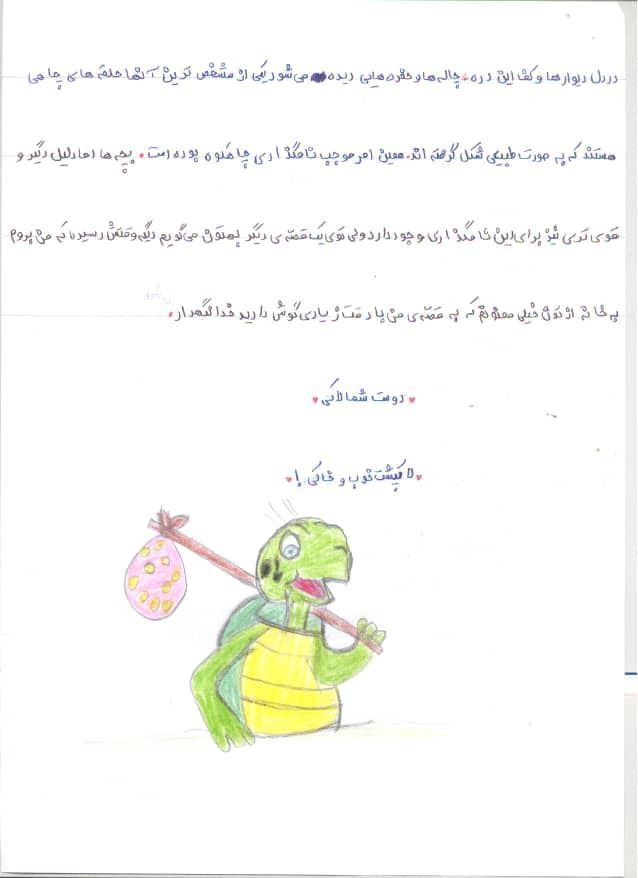 در دل دیوارها و کف این دره، چاله ها و حفره هایی دیده می شود یکی از مشخص ترین آنها حلقه های چاهی
هستند که به صورت طبیعی شکل گرفته اند. همین امر موجب نامگذاری چاهکوه بوده است. بچه ها اما دلیل دیگر و
قوی تری نیز برای این نامگذاری وجود دارد ولی توی یک قصه ی دیگر بهتون می گویم دیگه وقتش رسیده که من بروم
به خانه از تون خیلی ممنونم که به قصه ی من با دقت زیادی گوش دادید خدانگهدار.
دوست شما لاکی
لاکپشت خوب و خاکی!